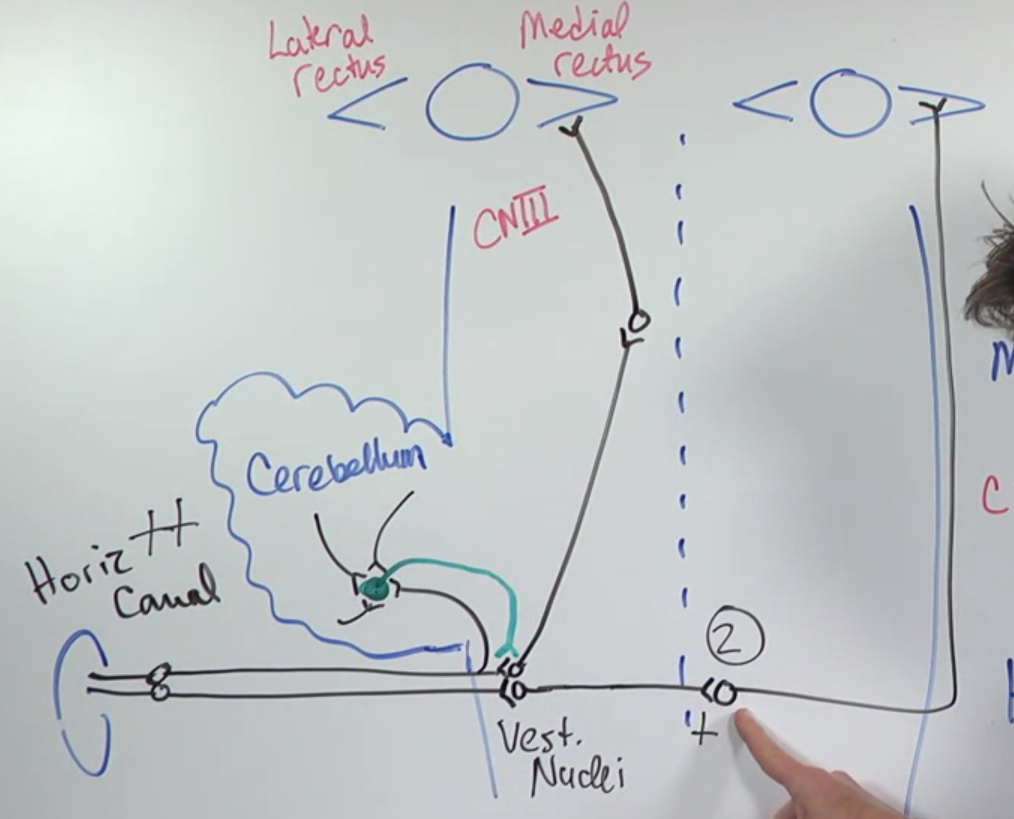 Lateral
rectus
Medial
rectus
CNIII
Cerebellum
Horiz
Canal
2
+
Vest.
Nuclei
C